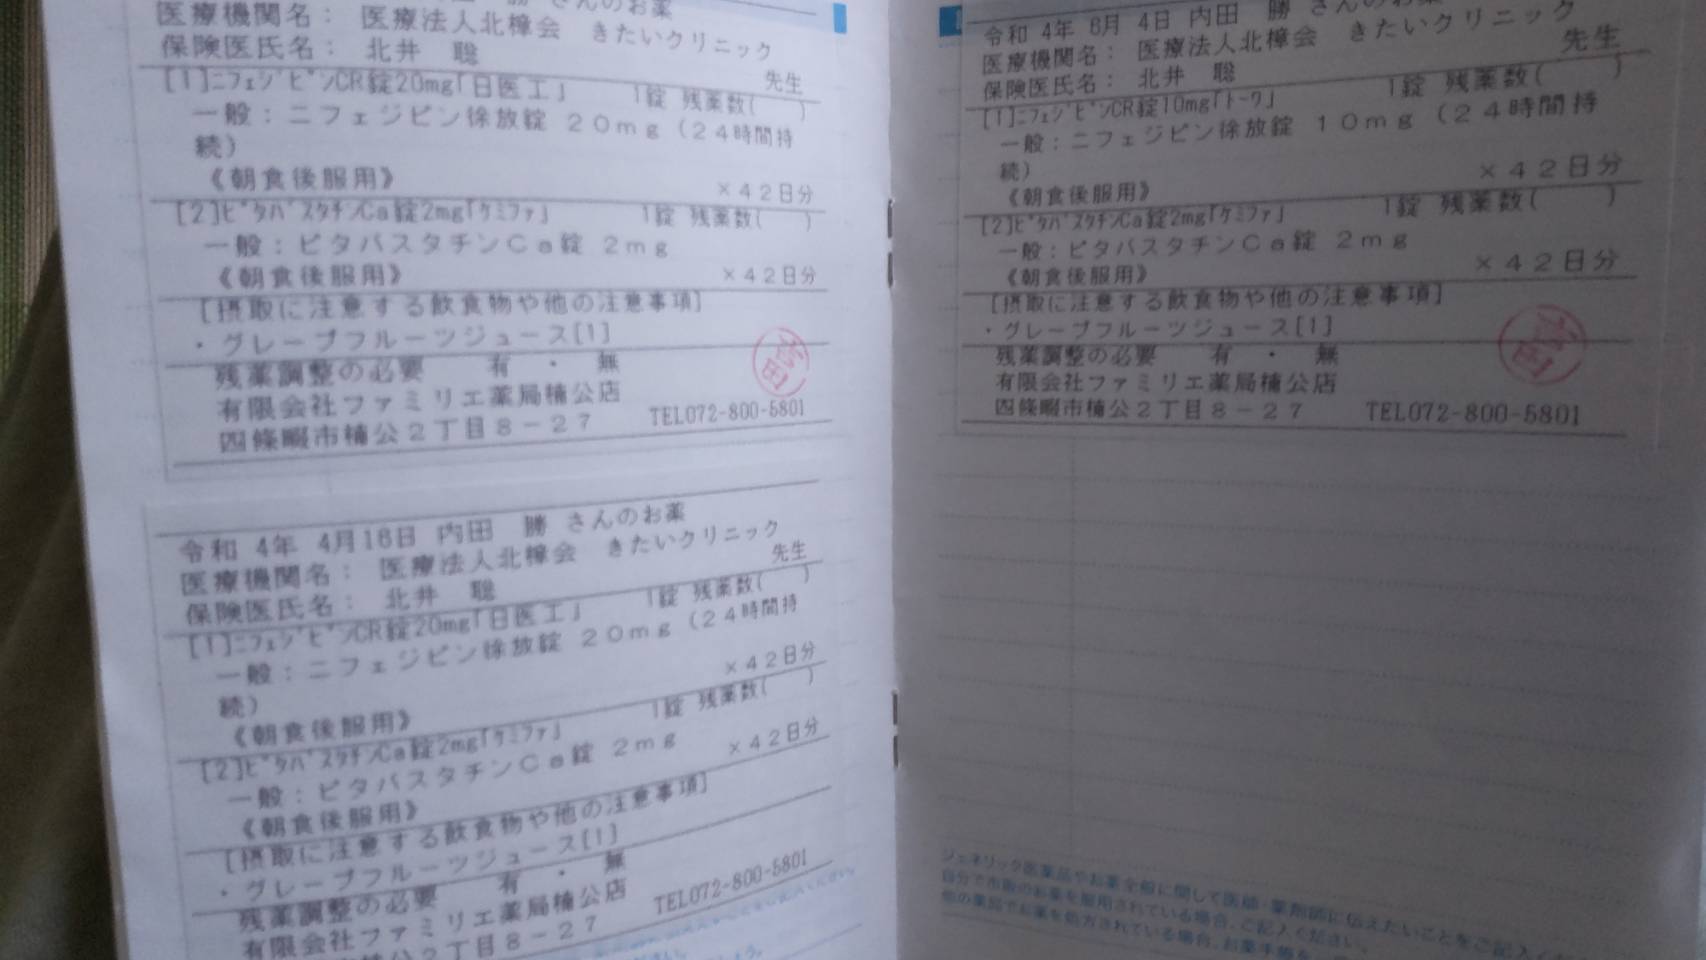 さんのお薬
医療機関名： 医療法人北樟会 きたいクリニック
保険医氏名： 北井 聡 先生
[1]ﾆﾌｪｼﾞﾋﾟﾝCR錠20mg「日医工」 1錠 残薬数( )
一般：ニフェジピン徐放錠 20mg（24時間持
続）
《朝食後服用》 ×42日分
[2]ﾋﾟﾀﾊﾞｽﾀﾁﾝCa錠2mg「ｹﾐﾌｧ」 1錠 残薬数( )
一般：ピタバスタチンCa錠 2mg
《朝食後服用》 ×42日分
[摂取に注意する飲食物や他の注意事項]
・グレープフルーツジュース[1]
残薬調整の必要 有 ・ 無
有限会社ファミリエ薬局楠公店
四條畷市楠公2丁目8－27 TEL072-800-5801
令和 4年 4月16日 内田 勝 さんのお薬
医療機関名： 医療法人北樟会 きたいクリニック
保険医氏名： 北井 聡 先生
[1]ﾆﾌｪｼﾞﾋﾟﾝCR錠20mg「日医工」 1錠 残薬数( )
一般：ニフェジピン徐放錠 20mg（24時間持
続）
《朝食後服用》 ×42日分
[2]ﾋﾟﾀﾊﾞｽﾀﾁﾝCa錠2mg「ｹﾐﾌｧ」 1錠 残薬数( )
一般：ピタバスタチンCa錠 2mg
《朝食後服用》 ×42日分
[摂取に注意する飲食物や他の注意事項]
・グレープフルーツジュース[1]
残薬調整の必要 有 ・ 無
有限会社ファミリエ薬局楠公店
楠公2丁目8－27 TEL072-800-5801
令和 4年 6月 4日 内田 勝 さんのお薬
医療機関名： 医療法人北樟会 きたいクリニック
保険医氏名： 北井 聡 先生
[1]ﾆﾌｪｼﾞﾋﾟﾝCR錠10mg「ﾄｰﾜ」 1錠 残薬数( )
一般：ニフェジピン徐放錠 10mg（24時間持
続）
《朝食後服用》 ×42日分
[2]ﾋﾟﾀﾊﾞｽﾀﾁﾝCa錠2mg「ｹﾐﾌｧ」 1錠 残薬数( )
一般：ピタバスタチンCa錠 2mg
《朝食後服用》 ×42日分
[摂取に注意する飲食物や他の注意事項]
・グレープフルーツジュース[1]
残薬調整の必要 有 ・ 無
有限会社ファミリエ薬局楠公店
四條畷市楠公2丁目8－27 TEL072-800-5801
ジェネリック医薬品やお薬全般に関して医師・薬剤師に伝えたいことをご記入
自分で市販のお薬を服用されている場合、ご記入ください。
他の薬局でお薬を処方されている場合、お薬手帳を